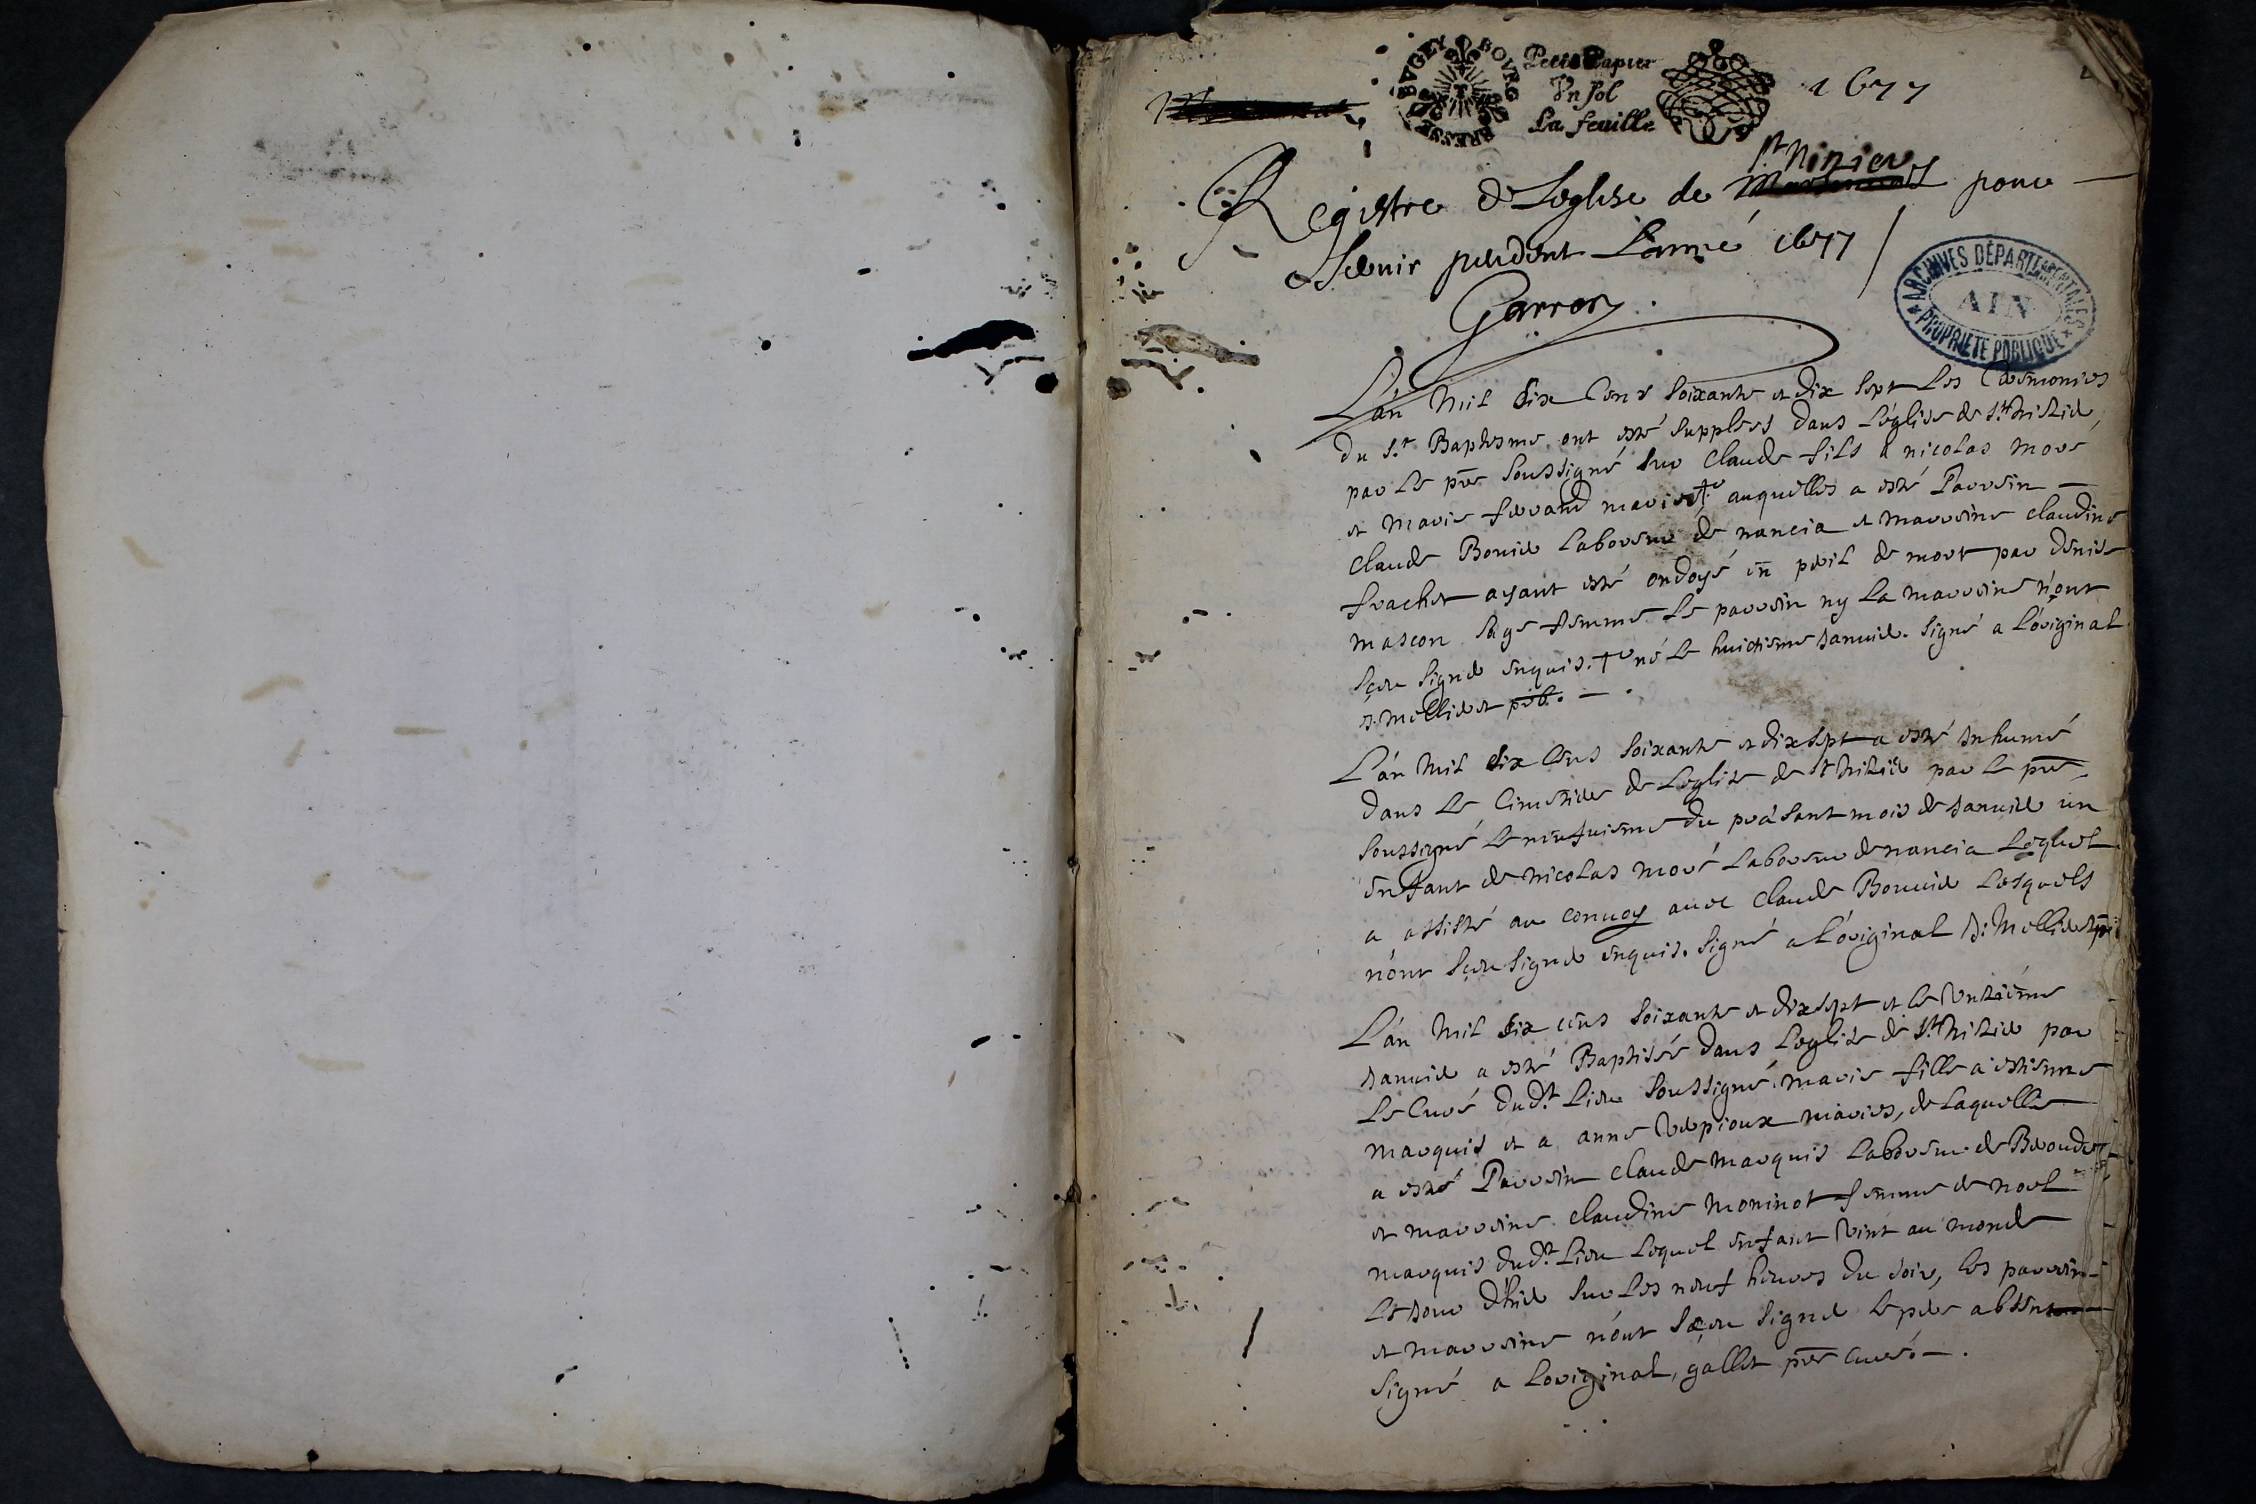 BVGEY BOVRG BRESSE
Petit Papier
Vn sol
La feuille
1677
Registre d Leglise de St Nizier pour
seruir pendent Lanné 1677
Garron
ARCHIVES DÉPARTEMENTALES
AIN
PROPRIÉTÉ PUBLIQUE
L'an mil six Cens soixante et dix sept Les Ceremonies
du St Baptesme ont esté supplees dans L'église de St nizier
par Le pre soussigné sur Claude fils a nicolas moré
et marie ferrand mariés + auquelles a esté Parrein
Claude Bonier Laboureur de nancia et marreine claudine
frachet ayant esté ondoyé en peril de mort par denise
mascon sage femme Le parrein ny La marreine n'ont
sceu signer enquis. + né Le huictieme Januier. signé a L'original
J. Mellieret pbr.
L'an mil six Cens soixante et dix sept a esté Inhumé
dans Le Cimetiere de Leglise de St nizier par Le pre
soussigné Le neufuieme du présant mois de Januier un
enfant de nicolas moré Laboureur de nancia Lequel
a assisté au conuoy auec Claude Bonnier Lesquels
n'ont sceu signer enquis. signé a L'original J: Mellieret
L'an mil six cens soixante et dix sept et Le Unzieme
Januier a esté Baptisée dans Leglise de St nizier par
Le Curé dudt Lieu soussigné marie fille a estienne
marquis et a anne Verpioux mariés, de Laquelle
a esté Parrein claude marquis Laboureur de
et marreine claudine moninot femme de noel
marquis dudt Lieu Lequel enfant vint au monde
Le Jour d'hier sur Les neuf heures du soir, Les parrein
et marreine n'ont sceu signer Le pere absent
signé a Loriginal, gallet pre curé.